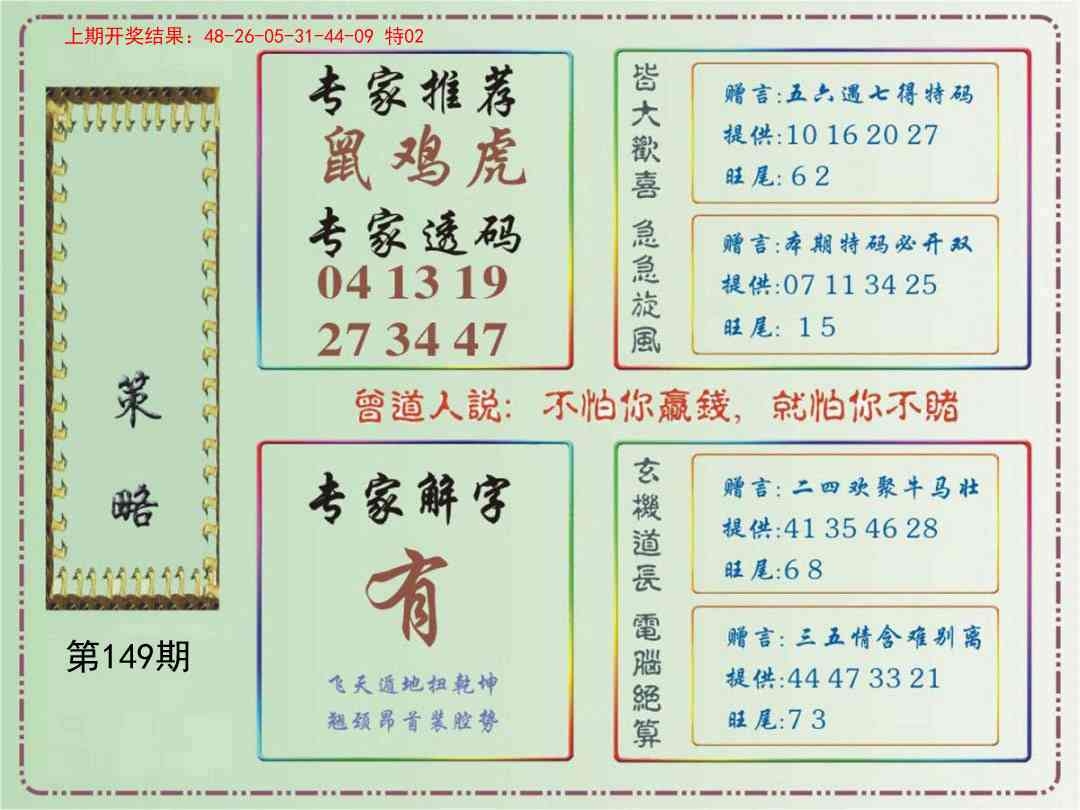 上期开奖结果：48-26-05-31-44-09 特02
策略
第149期
专家推荐
鼠鸡虎
专家透码
04 13 19
27 34 47
皆大歡喜
赠言:五六遇七得特码
提供:10 16 20 27
旺尾: 6 2
急急旋風
赠言:本期特码必开双
提供:07 11 34 25
旺尾: 1 5
曾道人説: 不怕你贏錢, 就怕你不賭
专家解字
有
飞天遁地扭乾坤
翘颈昂首装腔势
玄機道長
赠言: 二四欢聚牛马壮
提供:41 35 46 28
旺尾:6 8
電腦絕算
赠言: 三五情含难别离
提供:44 47 33 21
旺尾:7 3